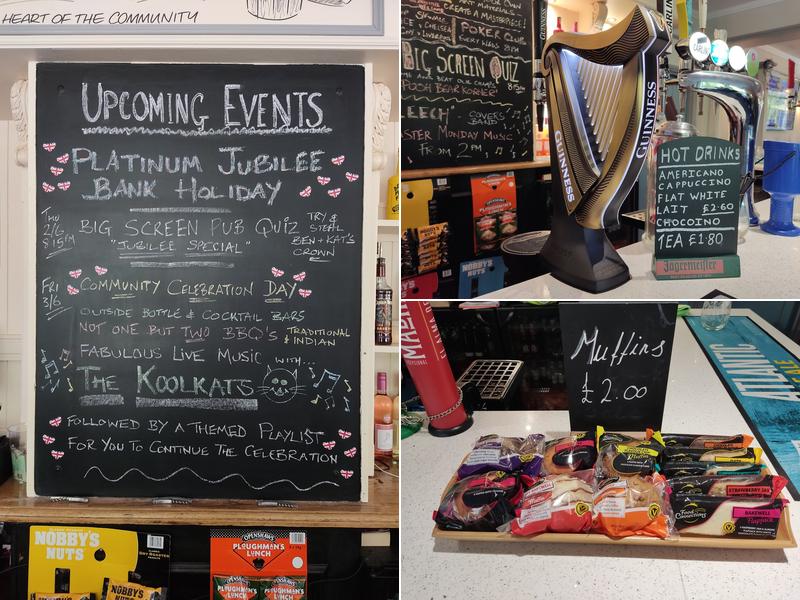 HEART OF THE COMMUNITY
UPCOMING EVENTS
PLATINUM JUBILEE
BANK HOLIDAY
THU
2/6
8:15PM
BIG SCREEN PUB QUIZ
"JUBILEE SPECIAL"
TRY &
STEAL
BEN + KAT'S
CROWN
FRI
3/6
COMMUNITY CELEBRATION DAY
OUTSIDE BOTTLE & COCKTAIL BARS
NOT ONE BUT TWO BBQ'S
TRADITIONAL
& INDIAN
FABULOUS LIVE MUSIC WITH...
THE KOOLKATS
FOLLOWED BY A THEMED PLAYLIST
FOR YOU TO CONTINUE THE CELEBRATION
NOBBY'S
NUTS
NOBBY'S
NUTS
OPENSHAW'S
PLOUGHMAN'S
LUNCH
PLOUGHMAN'S
LUNCH
CREATE A MASTERPIECE!
POKER CLUB
EVERY WEDS 8PM
BIG SCREEN QUIZ
POOH BEAR KORNER'
LEECH'
COVERS
BAND
MONDAY MUSIC
FROM 2PM
NOBBY'S
NUTS
GUINNESS
GUINNESS
HOT DRINKS
AMERICANO
CAPPUCCINO
FLAT WHITE
LAIT £2.60
CHOCOINO
TEA £1.80
Jägermeister
Muffins
£2.00
ATLANTIC
ALE
Food Connections
BAKEWELL
Flapjack